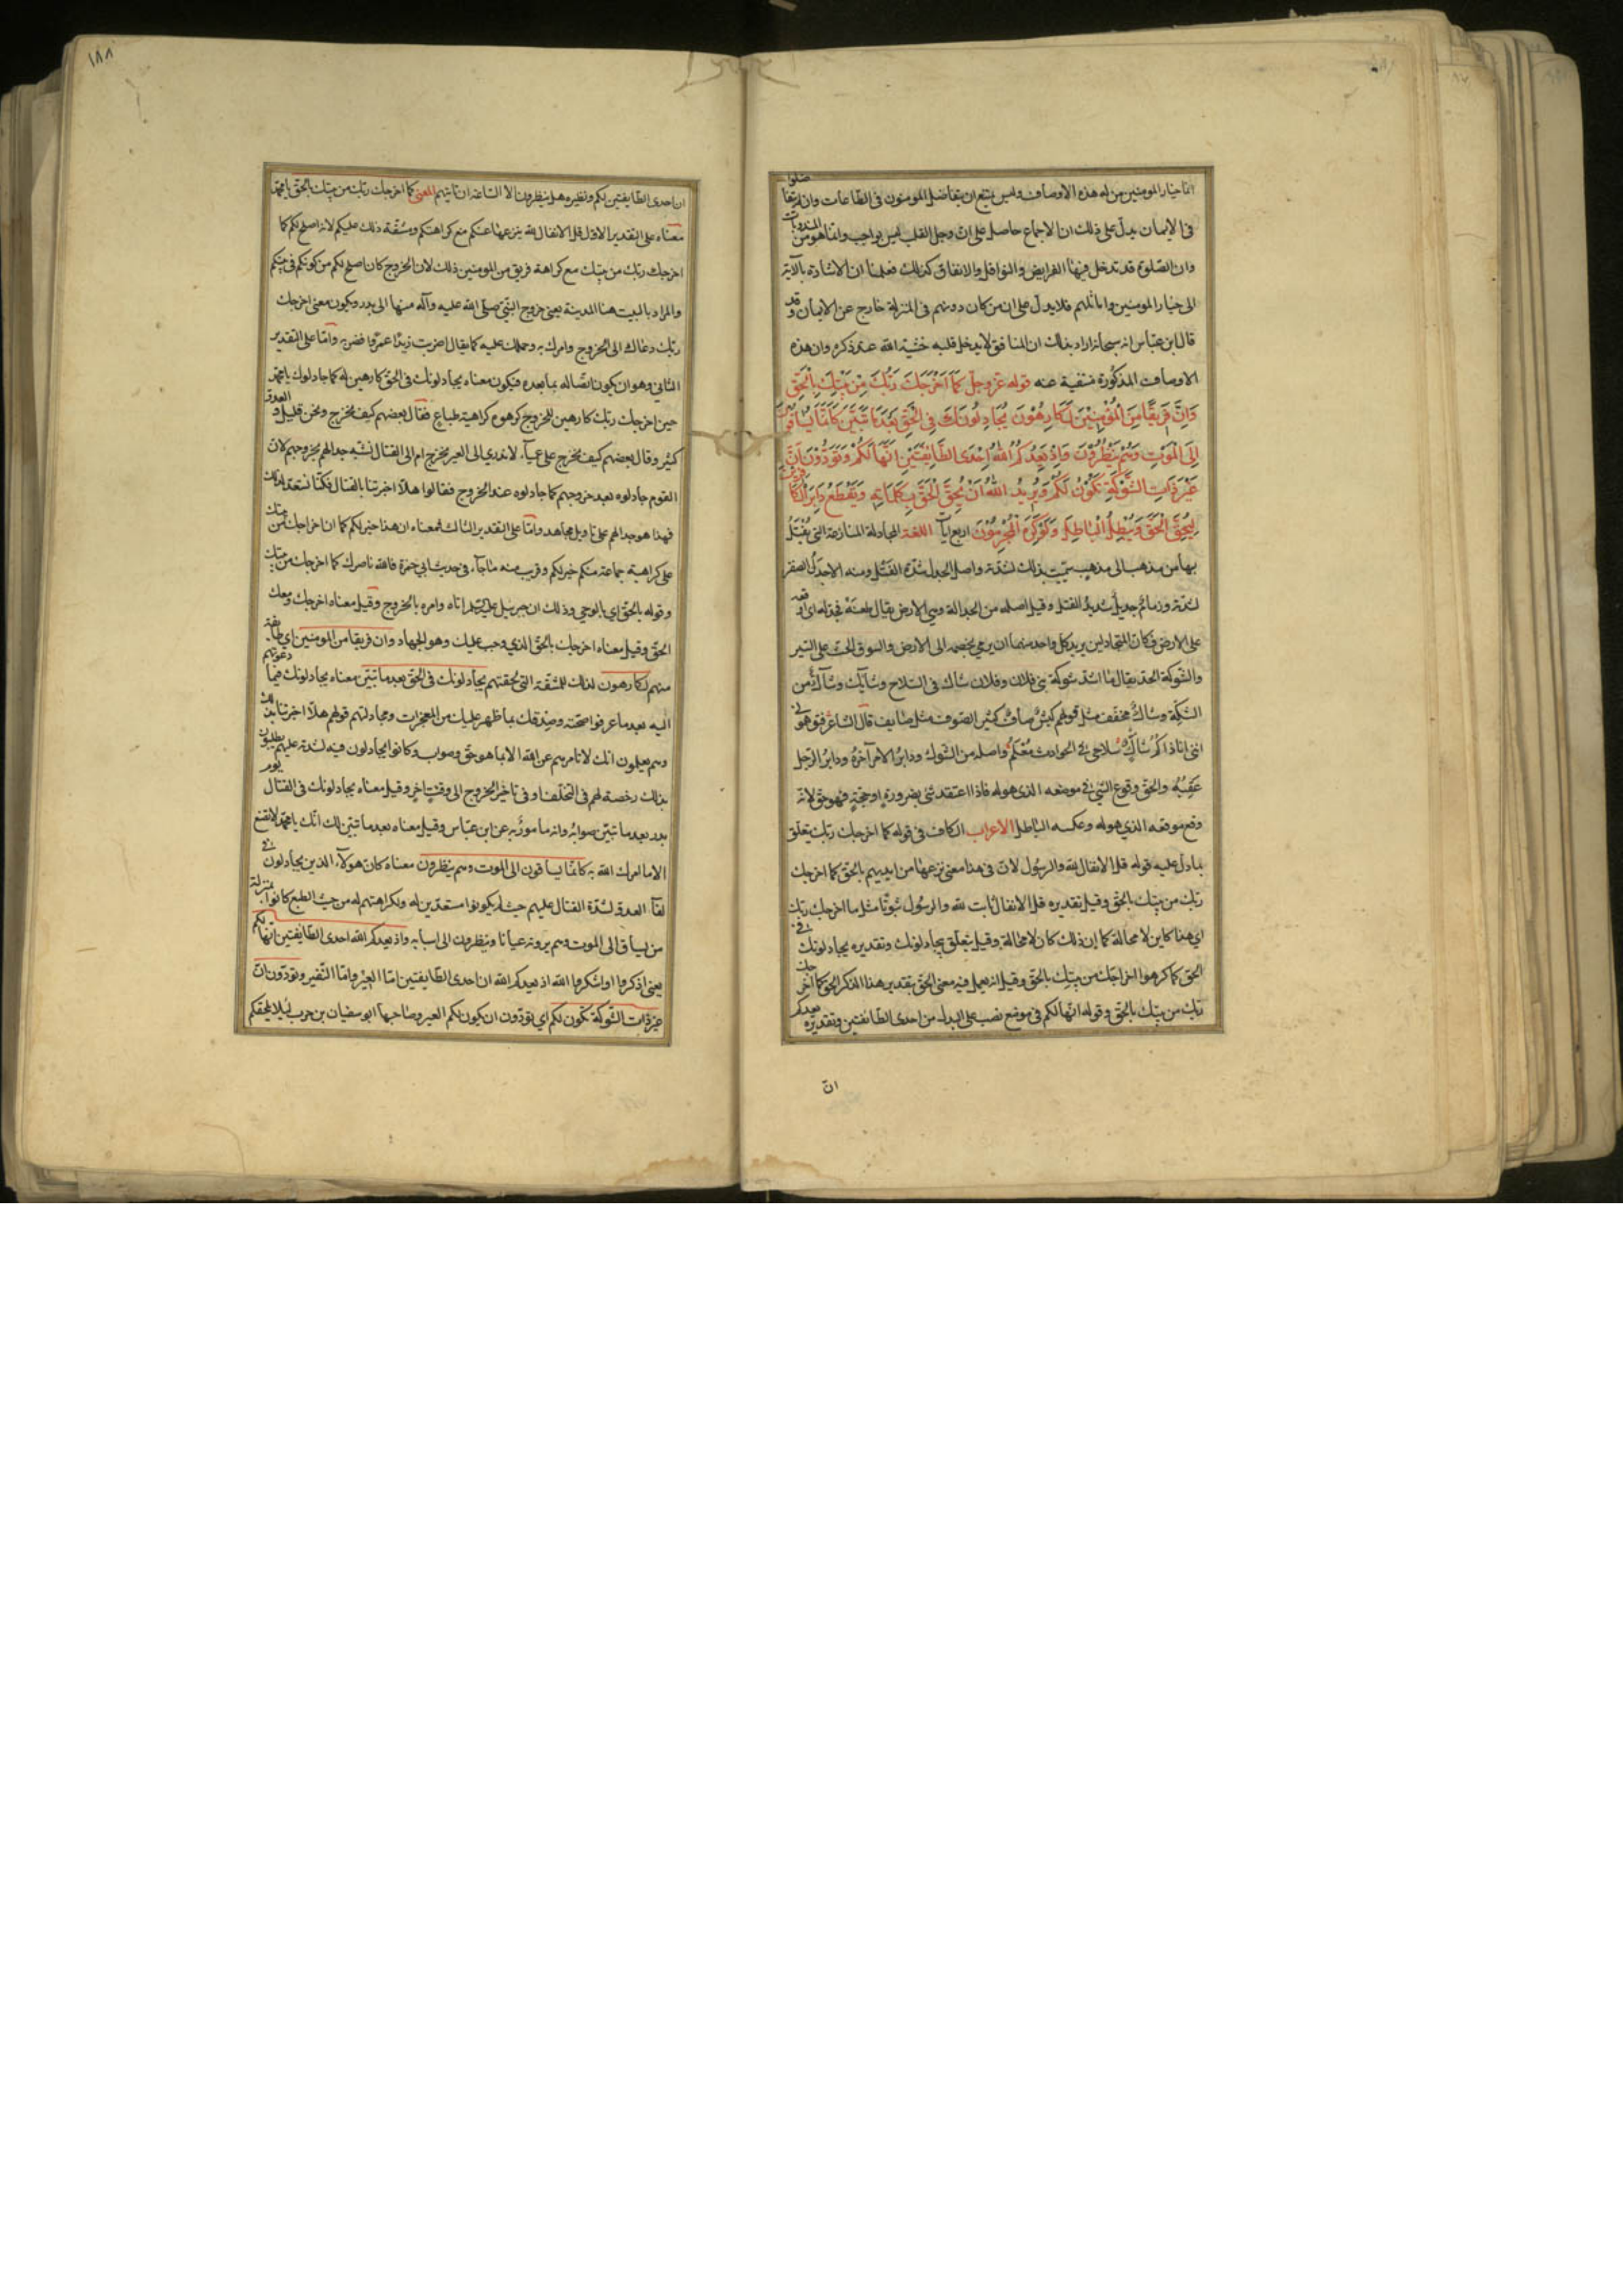 انما خيار المومنين من له هذه الاوصاف وليس يمتنع ان يتفاضل المومنون في الطاعات وان لم يتفاضلوا
في الايمان يدل على ذلك ان الاجماع حاصل على ان وجل القلب ليس بواجب وانما هو من المندوبات
وان الصلوة قد تدخل فيها الفرايض والنوافل والانفاق كذلك فعلمنا ان الاشارة بالآية
الى خيار المومنين واماثلهم فلا يدل على ان من كان دونهم في المنزلة خارج عن الايمان وقد
قال ابن عباس انه سبحانه اراد بذلك ان المنافق لا يدخل قلبه خشية الله عند ذكره وان هذه
الاوصاف المذكورة منتفية عنه قوله عز وجل كَمَا اَخْرَجَكَ رَبُّكَ مِنْ بَيْتِكَ بِالْحَقِّ
وَاِنَّ فَرِيقًا مِنَ الْمُؤْمِنِيْنَ لَكَارِهُوْنَ يُجَادِلُونَكَ فِي الْحَقِّ بَعْدَمَا تَبَيَّنَ كَاَنَّمَا يُسَاقُونَ
اِلَى الْمَوْتِ وَهُمْ يَنْظُرُوْنَ وَاِذْ يَعِدُكُمُ اللهُ اِحْدَى الطَّائِفَتَيْنِ اَنَّهَا لَكُمْ وَتَوَدُّوْنَ اَنَّ
غَيْرَ ذَاتِ الشَّوْكَةِ تَكُوْنُ لَكُمْ وَيُرِيْدُ اللهُ اَنْ يُحِقَّ الْحَقَّ بِكَلِمَاتِهِ وَيَقْطَعَ دَابِرَ الْكَافِرِينَ
لِيُحِقَّ الْحَقَّ وَيُبْطِلَ الْبَاطِلَ وَلَوْ كَرِهَ الْمُجْرِمُوْنَ اربع آيات اللغة المجادلة المنازعة التي يُفْتَلُ
بها من مذهب الى مذهب سميت بذلك لشدته واصل الجدل شدة الفَتْل ومنه الاجدل الصقر
لشدته وزمام جديل شديد الفتل وقيل اصله من الجدالة وهي الارض يقال طعنه فجدله اي اوقعه
على الارض فكان المتجادلين يريد كل واحد منهما ان يرمي بخصمه الى الارض والسوق الحث على السير
والشوكة الحد يقال ما اشد شوكة بني فلان وفلان شاك في السلاح وشايك وشاكّ من
الشِكة وشاك مخفف مثل قولهم كبش صاف كثير الصوف مثل صايف قال الشاعر فتوهموني
انني انا ذاكم شاك سلاحي في الحوادث مُعْلَم واصله من الشوك ودابرُ الامر آخرهُ ودابرُ الرجل
عَقِبُهُ والحق وقوع الشيء في موضعه الذي هو له فاذا اعتقد شئ بضرورة او حجّةٍ فهو حق لانه
وقع موقعه الذي هو له وعكسه الباطل الاعراب الكاف في قوله كما اخرجك ربك يتعلق
بما دل عليه قوله قل الانفال لله والرسول لان في هذا معنى نزعها من ايديهم بالحق كما اخرجك
ربك من بيتك بالحق وقيل تقديره قل الانفال ثابت لله والرسول ثبوتًا مثل ما اخرجك ربك
اي هذا كاين لا محالة كما ان ذلك كان لا محالة وقيل يتعلق بيجادلونك وتقديره يجادلونك في
الحق كما كرهوا اخراجك من بيتك بالحق وقيل انه يعمل فيه معنى الحق بتقدير هذا الذكر الحق كما اخرجك
ربك من بيتك بالحق وقوله انها لكم في موضع نصب على البدل من احدى الطائفتين وتقديره يعدكم
ان
١٨٨
ان احدى الطايفتين لكم ونظيره هل ينظرون الا الساعة ان تاتيهم المعنى كما اخرجك ربك من بيتك بالحق يا محمد
معناه على التقدير الاول قل الانفال لله ينزعها عنكم مع كراهتكم ومشقة ذلك عليكم لانه اصلح لكم كما
اخرجك ربك من بيتك مع كراهة فريق من المومنين ذلك لان الخروج كان اصلح لكم من كونكم في بيتكم
والمراد بالبيت هنا المدينة يعني خروج النبي صلى الله عليه وآله منها الى بدر ويكون معنى اخرجك
ربك دعاك الى الخروج وامرك به وحملك عليه كما يقال اضربت زيدًا عمرًوا فضربه واما على التقدير
الثاني وهو ان يكون اتصاله بما بعده فيكون معناه يجادلونك في الحق كارهين له كما جادلوك يا محمد
حين اخرجك ربك كارهين للخروج كرهوه كراهية طباع فقال بعضهم كيف نخرج ونحن قليل والعدو
كثير وقال بعضهم كيف نخرج على عمياء لا ندري الى العير نخرج ام الى القتال فشبه جدالهم بخروجهم لان
القوم جادلوه بعد خروجهم كما جادلوه عند الخروج فقالوا هلا اخبرتنا بالقتال فكنا نستعد لذلك
فهذا هو جدالهم على تاويل مجاهد واما على التقدير الثالث فمعناه ان هذا خير لكم كما ان اخراجك من بيتك
على كراهية جماعة منكم خير لكم وقريب منه ما جآء في حديث ابي حمزة فالله ناصرك كما اخرجك من بيتك
وقوله بالحق اي بالوحي وذلك ان جبرئيل عليه السلم اتاه وامره بالخروج وقيل معناه اخرجك ومعك
الحق وقيل معناه اخرجك بالحق الذي وجب عليك وهو الجهاد وان فريقا من المومنين اي طايفة
منهم لكارهون لذلك للمشقة التي لحقتهم يجادلونك في الحق بعد ما تبين معناه يجادلونك فيما دعوتهم
اليه بعد ما عرفوا صحته وصدقك بما ظهر عليك من المعجزات ومجادلتهم قولهم هلا اخبرتنا بذلك
وهم يعلمون انك لا تامرهم عن الله الا بما هو حق وصواب وكانوا يجادلون فيه لشدته عليهم يطلبون
بذلك رخصة لهم في التخلف او في تاخير الخروج الى وقتٍ اخر وقيل معناه يجادلونك في القتال يوم
بدر بعد ما تبين صوابه وانه مامور به عن ابن عباس وقيل معناه بعد ما تبين لك انك يا محمد لا تصنع
الا ما امرك الله به كانما يساقون الى الموت وهم ينظرون معناه كان هولآء الذين يجادلونك في
لقآء العدو لشدة القتال عليهم حيث لم يكونوا مستعدين له ولكراهتهم له من حيث الطبع كانوا بمنزلة
من يساق الى الموت وهم يرونه عيانا وينظرون الى اسبابه واذ يعدكم الله احدى الطايفتين انها لكم
يعني اذكروا او اشكروا الله اذ يعدكم الله ان احدى الطايفتين اما العير واما النفير وتودون ان
غير ذات الشوكة تكون لكم اي تودون ان يكون لكم العير وصاحبها ابو سفيان بن حرب ليلا يلحقكم